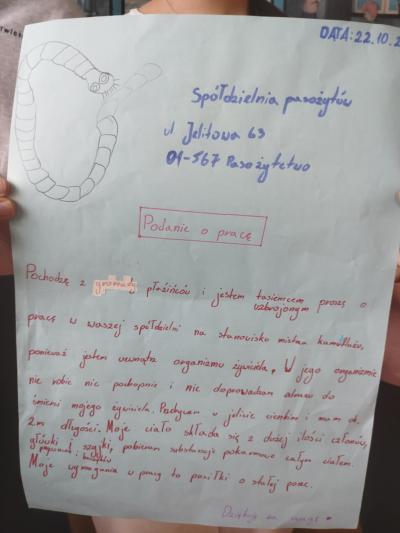 DATA: 22.10.2
Spółdzielnia pasożytów
ul Jelitowa 63
01-567 Pasożytctwo
Podanie o pracę
Pochodzę z gromady płazińców i jestem tasiemcem proszę o
uzbrojonym
pracę w waszej spółdzielni na stanowisko mistrza kamuflażu,
ponieważ jestem wewnątrz organizmu żywiciela. W jego organizmie
nie robię nic pochopnie i nie doprowadzam do
śmierci mojego żywiciela. Pasożytuje w jelicie cienkim i mam ok.
2m długości. Moje ciało składa się z dużej ilości członów,
główki i szyjki, pobieram substancje pokarmowe całym ciałem.
Moje wymagania w pracy to posiłki o stałej porze.
Dziękuję za uwagę